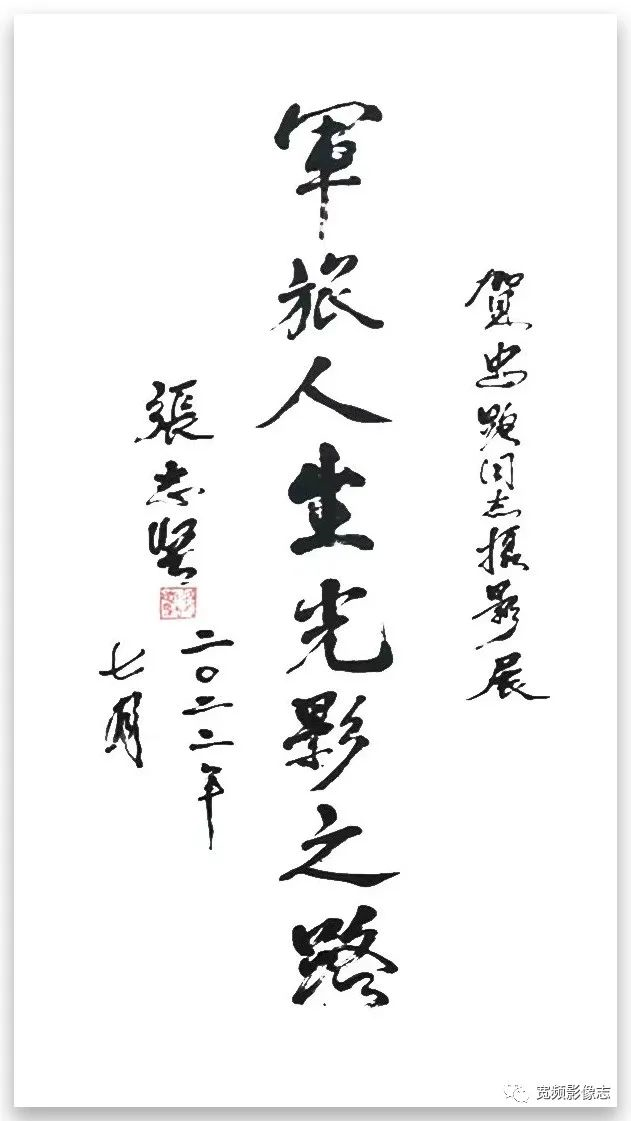 賀忠路同志摄影展
軍旅人生光影之路
張志堅
二〇二二年
七月
宽频影像志